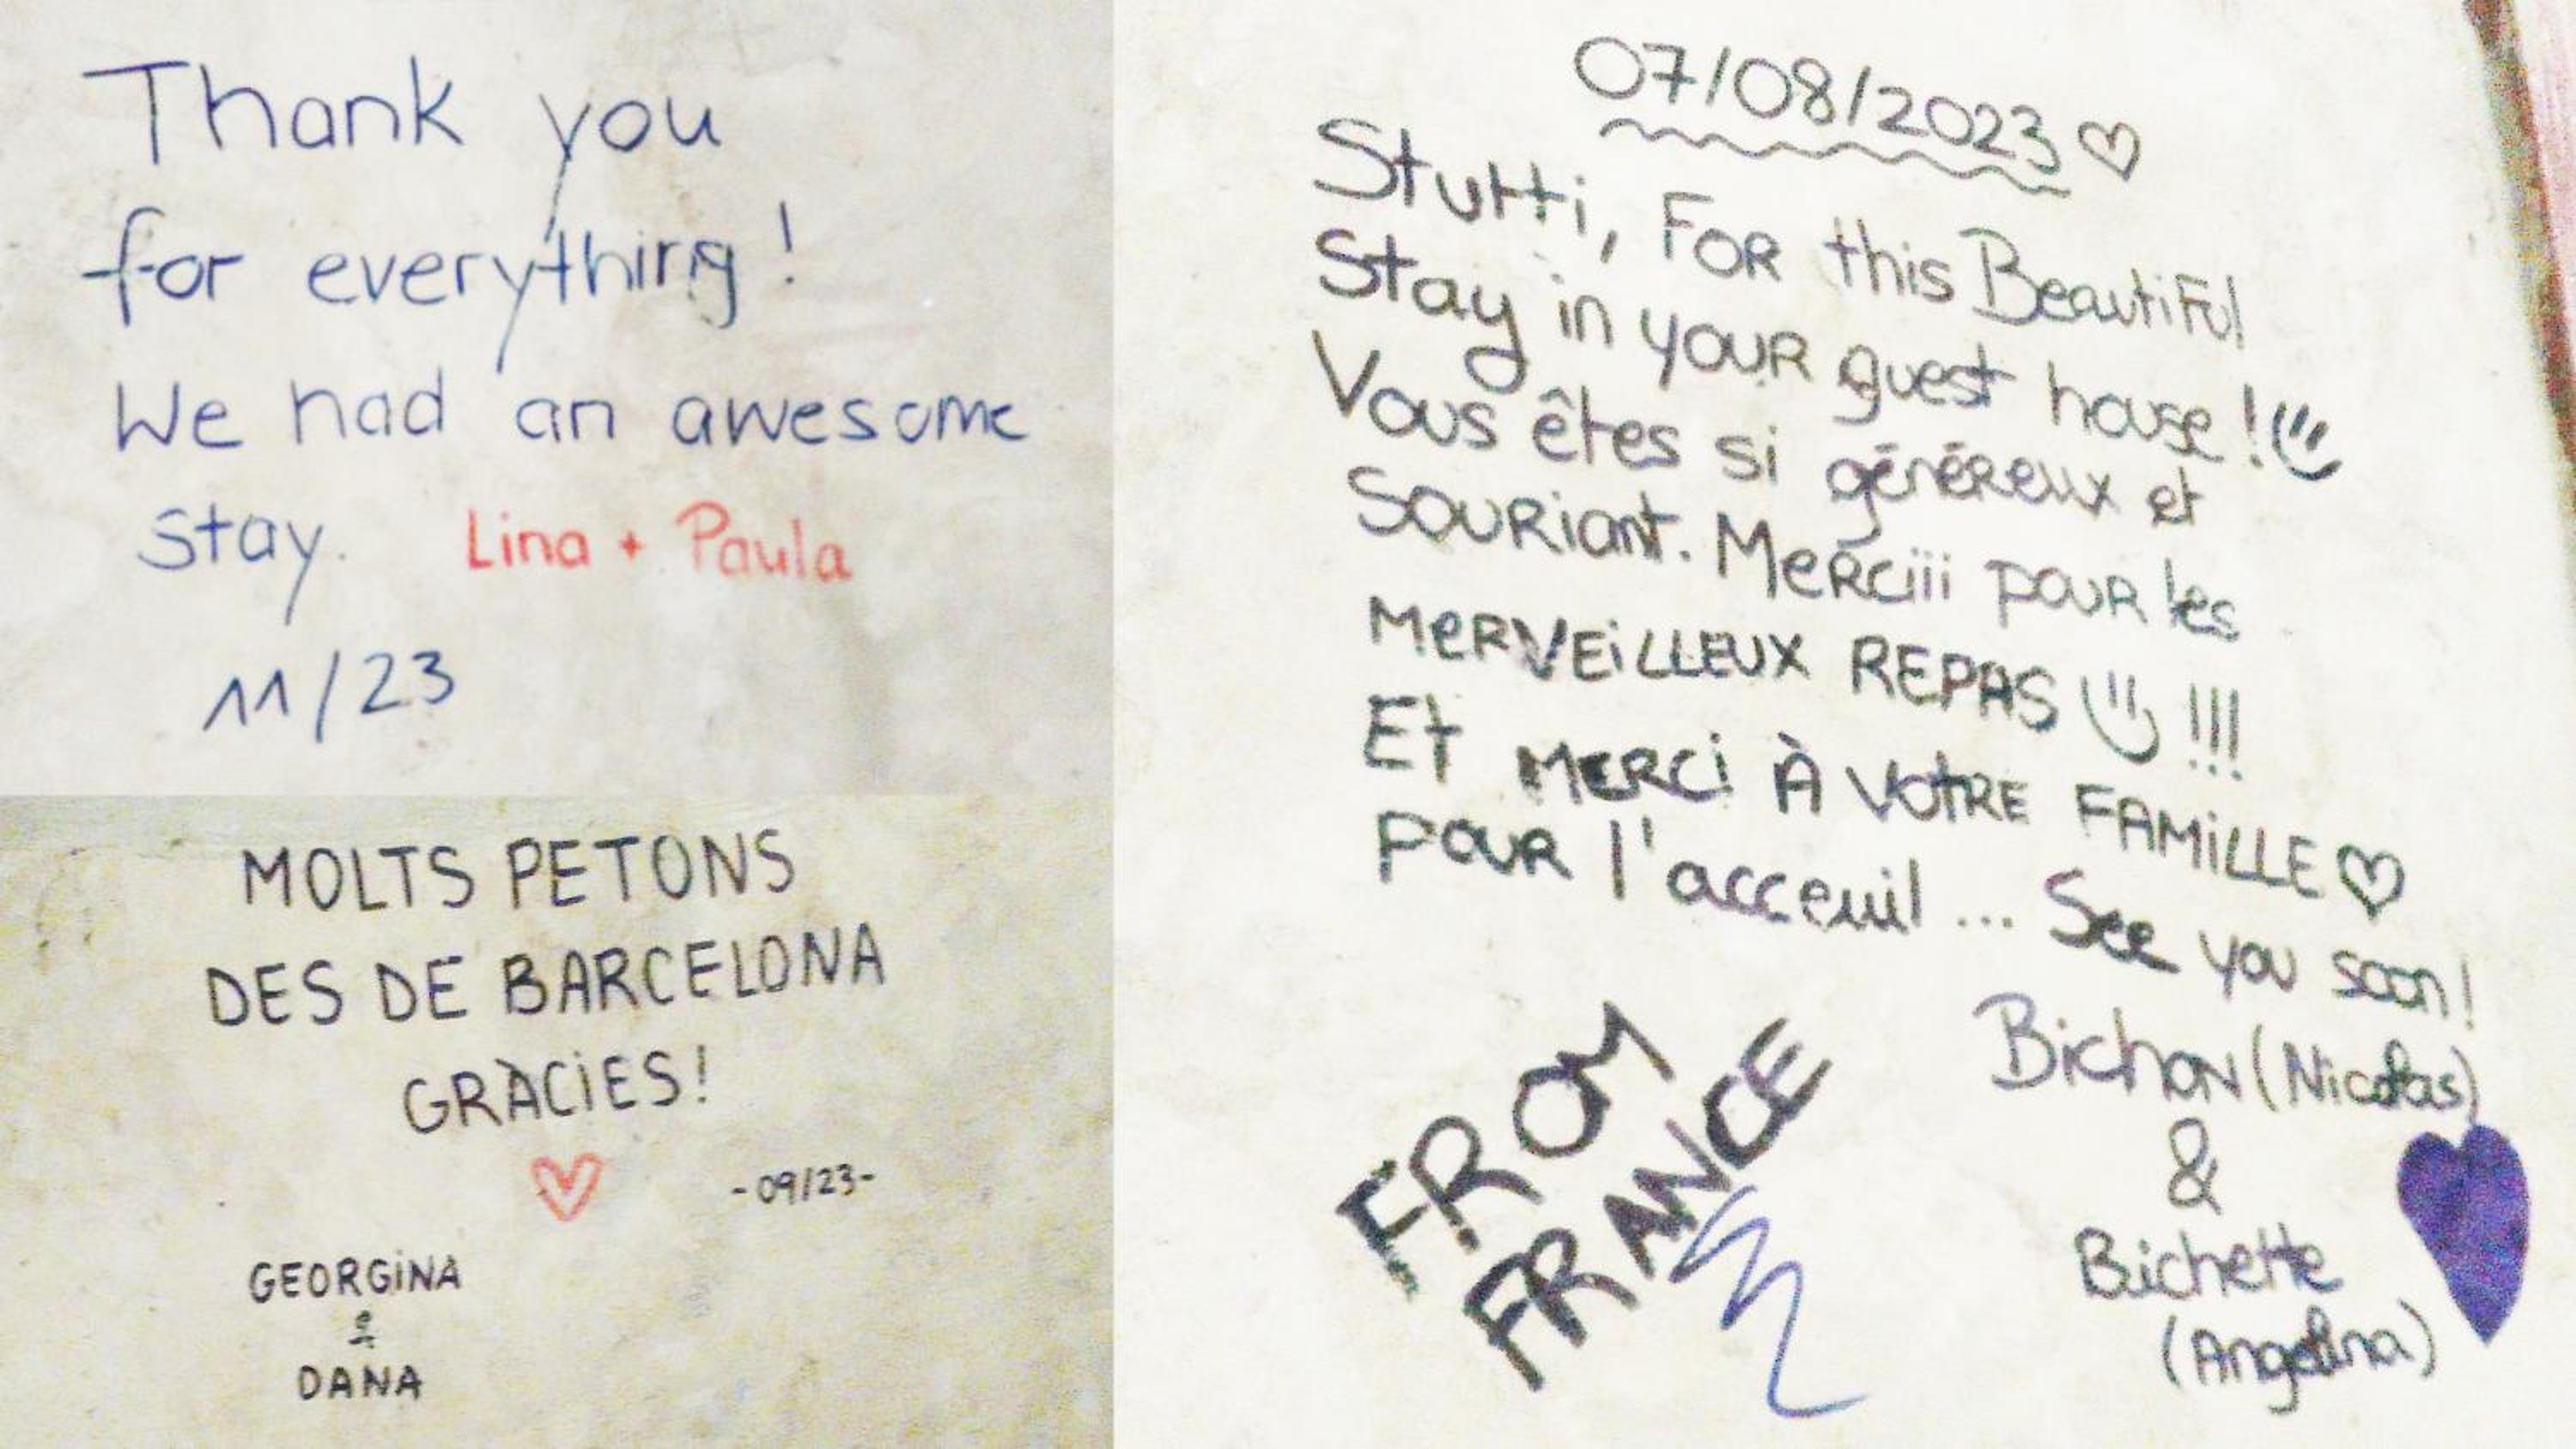 Thank you
for everything!
We had an awesome
stay. Lina + Paula
11/23
MOLTS PETONS
DES DE BARCELONA
GRÀCIES!
-09/23-
GEORGINA
&
DANA
07/08/2023
Stutti, FOR this BeautiFul
Stay in youR guest house!
Vous êtes si généReux et
SouRiant. MeRciii pouR les
MeRVEiLLEUX REPAS !!!
Et MERCi À VOtRE FAMiLLE
pouR l'acceuil... See you soon!
BichoN (Nicolas)
&
Bichette
(Angelina)
FROM
FRANCE